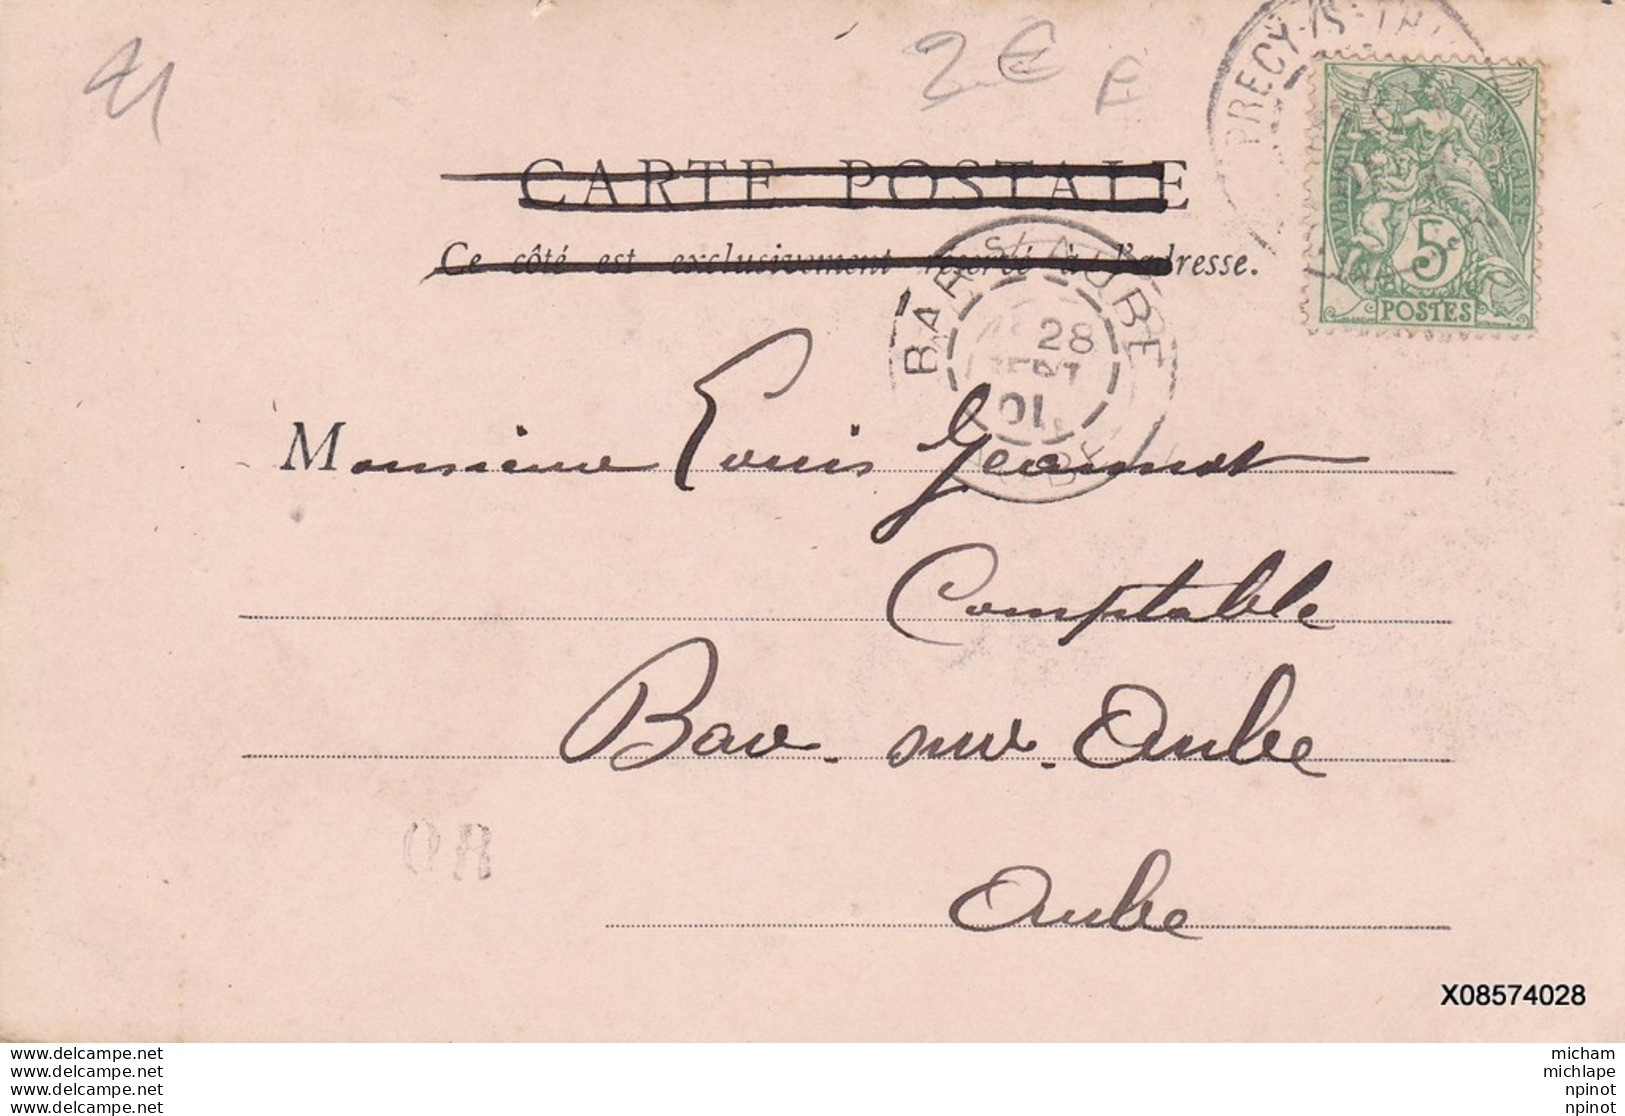 21
2 €
E
PRECY-
RÉPUBLIQUE FRANÇAISE
5c
POSTES
CARTE POSTALE
Ce côté est exclusivement réservé à l'adresse.
BAR-S/-AUBE
28
SEPT
01
AUBE
Monsieur Louis Jeannot
Comptable
Bar-sur-Aube
OR
Aube
X08574028
www.delcampe.net
www.delcampe.net
www.delcampe.net
www.delcampe.net
micham
michlape
npinot
npinot